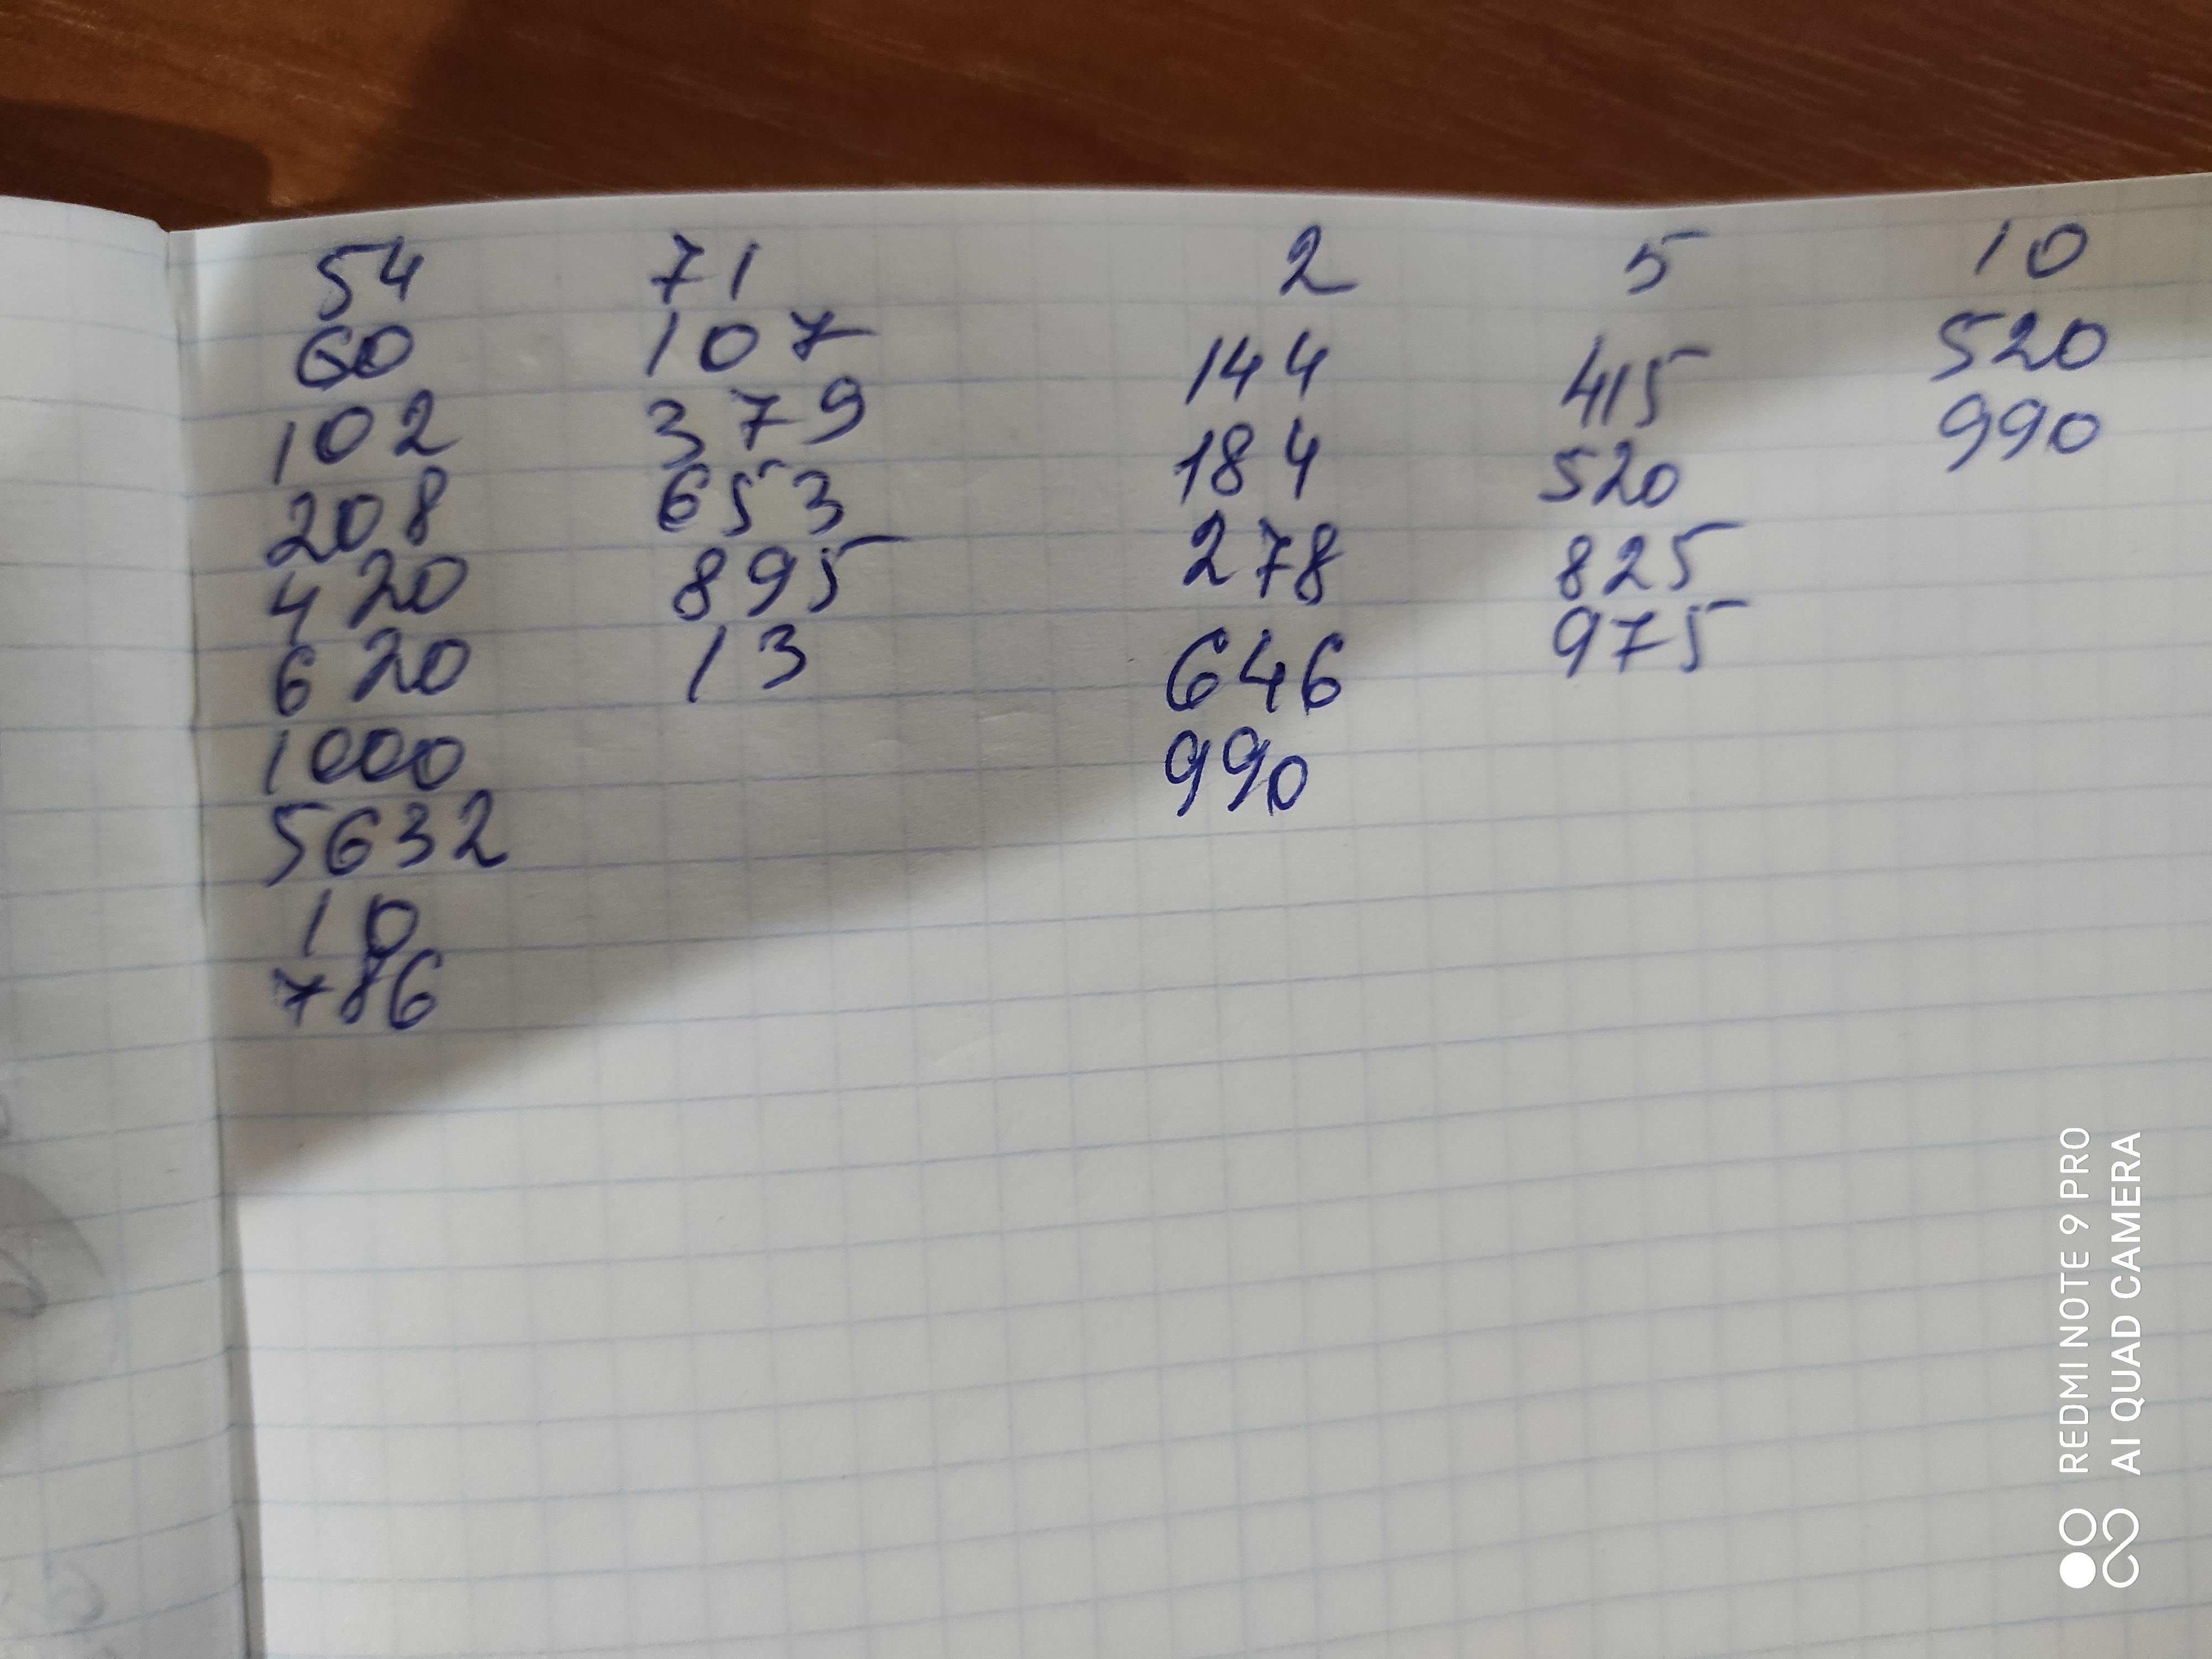 54 71 2 5 10
60 107 144 415 520
102 379 184 520 990
208 653 278 825
420 895 646 975
620 13 990
1000
5632
10
786
REDMI NOTE 9 PRO
AI QUAD CAMERA